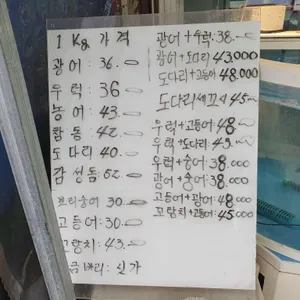 1 Kg 가격
광어: 36.000
우럭: 36.000
농어: 43.000
참돔: 42.000
도다리: 40.000
감성돔: 52.000
보리숭어: 30.000
고등어: 30.000
꼬랑치: 43.000
금바리: 싯가
광어+우럭: 38.000
광어+도다리 43.000
도다리+고등어 48.000
도다리세꼬시 45.000
우럭+고등어 48.000
우럭+도다리: 43.000
우럭+숭어: 38.000
광어+숭어: 38.000
고등어+광어 48.000
꼬랑치+고등어: 45.000